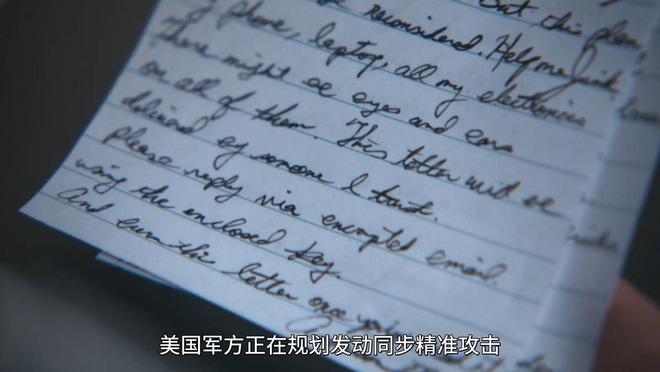 But this plan,
reconsidered. Help me find
my phone, laptop, all my electronics
there might be eyes and ears
on all of them. This letter will be
delivered by someone I trust.
please reply via encrypted email.
using the enclosed key.
And burn this letter once you
美国军方正在规划发动同步精准攻击